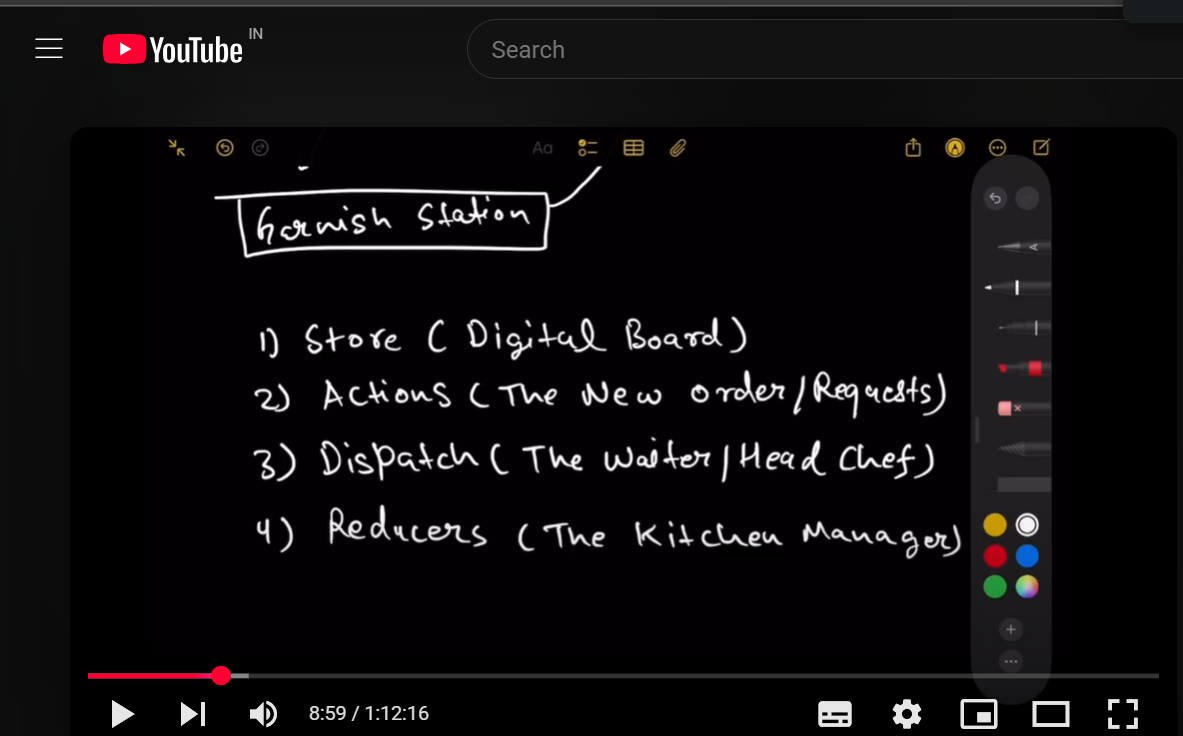 YouTube IN
Search
Aa
Garnish Station
1) Store ( Digital Board )
2) Actions ( The New order / Requests )
3) Dispatch ( The Waiter / Head Chef )
4) Reducers ( The Kitchen Manager )
8:59 / 1:12:16